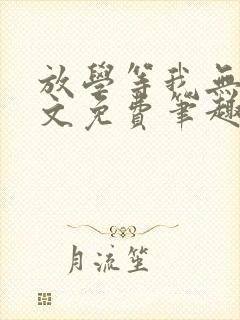 放學等我無
文免費筆趣
月流笙